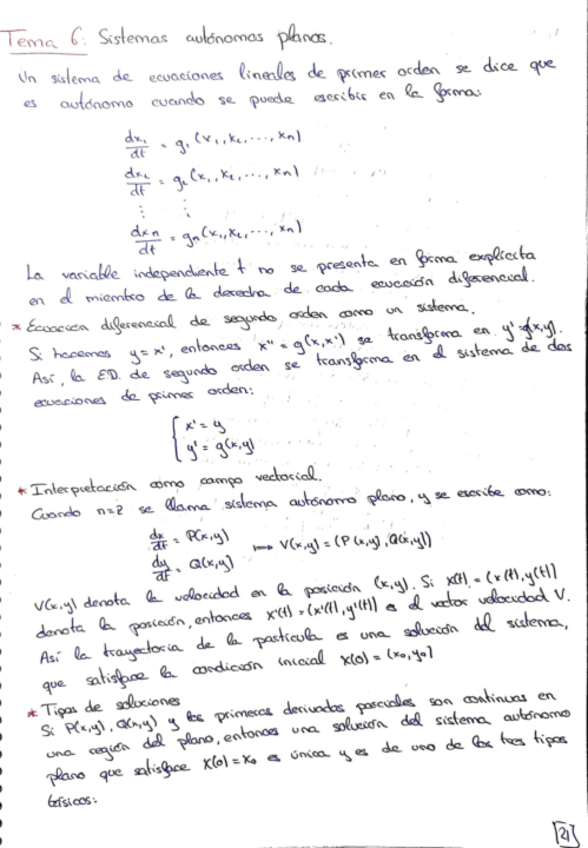 Tema 6: Sistemas autónomos planos.
Un sistema de ecuaciones lineales de primer orden se dice que
es autónomo cuando se puede escribir en la forma:
dx₁/dt = g₁(x₁, x₂, ..., xn)
dx₂/dt = g₂(x₁, x₂, ..., xn)
⋮ ⋮
dxn/dt = gn(x₁, x₂, ..., xn)
La variable independiente t no se presenta en forma explícita
en el miembro de la derecha de cada ecuación diferencial.
* Ecuación diferencial de segundo orden como un sistema.
Si hacemos y = x', entonces x'' = g(x,x') se transforma en y' = g(x,y).
Así, la E.D. de segundo orden se transforma en el sistema de dos
ecuaciones de primer orden:
{ x' = y
y' = g(x,y)
* Interpretación como campo vectorial.
Cuando n=2 se llama sistema autónomo plano, y se escribe como:
dx/dt = P(x,y)
↦ V(x,y) = (P(x,y), Q(x,y))
dy/dt = Q(x,y)
V(x,y) denota la velocidad en la posición (x,y). Si X(t) = (x(t), y(t))
denota la posición, entonces X'(t) = (x'(t), y'(t)) es el vector velocidad V.
Así la trayectoria de la partícula es una solución del sistema,
que satisface la condición inicial X(0) = (x₀, y₀)
* Tipos de soluciones
Si P(x,y), Q(x,y) y las primeras derivadas parciales son continuas en
una región del plano, entonces una solución del sistema autónomo
plano que satisface X(0) = X₀ es única y es de uno de los tres tipos
básicos:
21